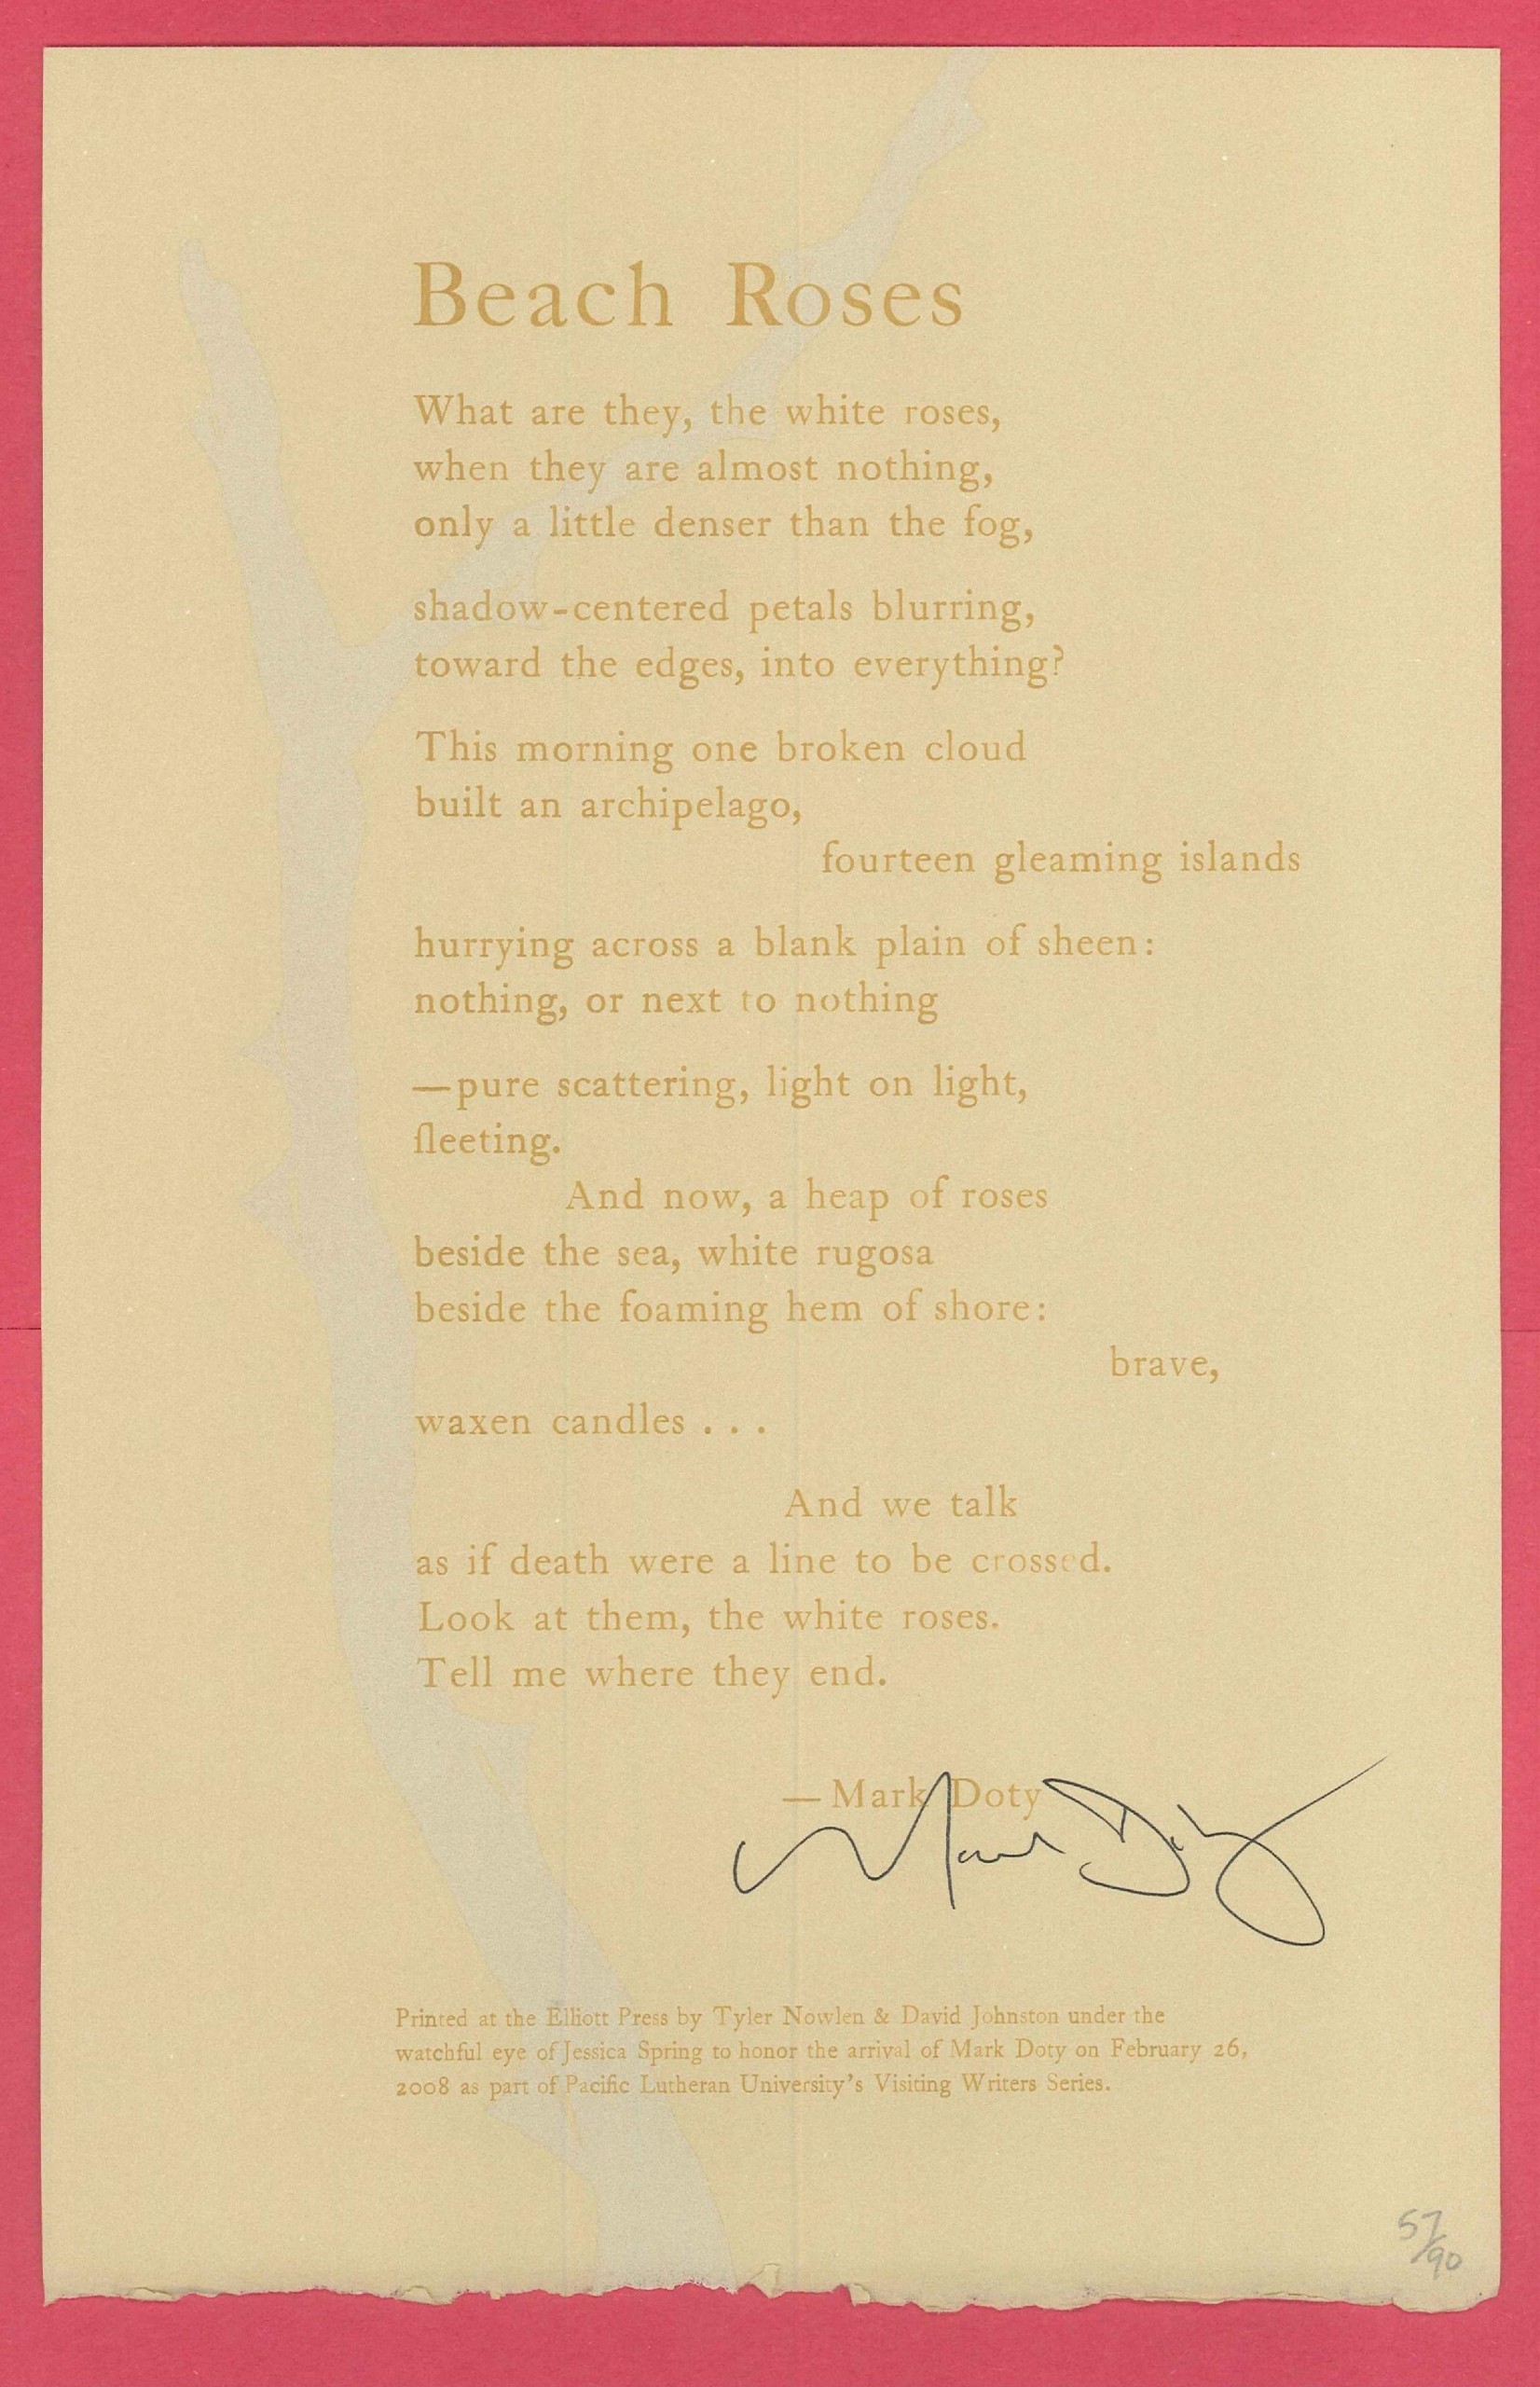 Beach Roses
What are they, the white roses,
when they are almost nothing,
only a little denser than the fog,
shadow-centered petals blurring,
toward the edges, into everything?
This morning one broken cloud
built an archipelago,
fourteen gleaming islands
hurrying across a blank plain of sheen:
nothing, or next to nothing
—pure scattering, light on light,
fleeting.
And now, a heap of roses
beside the sea, white rugosa
beside the foaming hem of shore:
brave,
waxen candles . . .
And we talk
as if death were a line to be crossed.
Look at them, the white roses.
Tell me where they end.
—Mark Doty
Mark Doty
Printed at the Elliott Press by Tyler Nowlen & David Johnston under the
watchful eye of Jessica Spring to honor the arrival of Mark Doty on February 26,
2008 as part of Pacific Lutheran University's Visiting Writers Series.
57/90